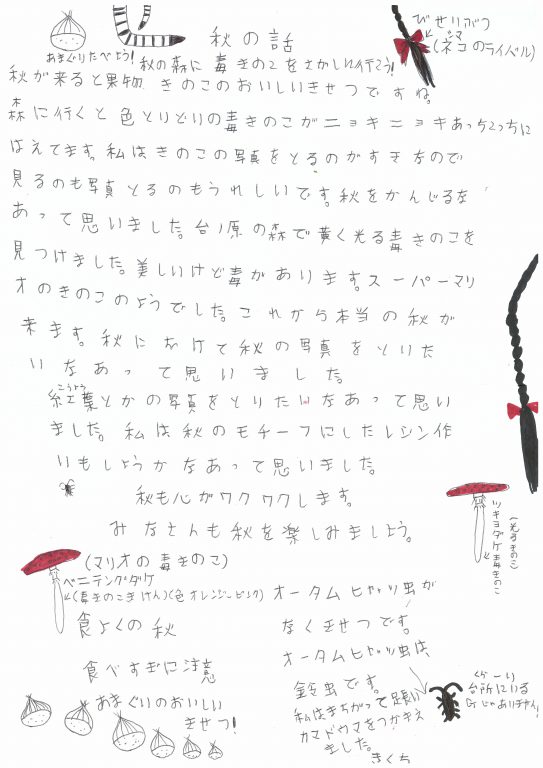 秋の話
びせりぶつ
シマ
(ネコのライバル)
あまぐりたべよう!
秋の森に毒きのこをさがしに行こう!
秋が来ると果物、きのこのおいしいきせつですね。
森に行くと色とりどりの毒きのこがニョキニョキあっちこっちに
はえてます。私はきのこの写真をとるのがすきなので
見るのも写真とるのもうれしいです。秋をかんじるな
あって思いました。台ノ原の森で黄く光る毒きのこを
見つけました。美しいけど毒があります。スーパーマリ
オのきのこのようでした。これから本当の秋が
来ます。秋にむけて秋の写真をとりた
いなあって思いました。
こうよう
紅葉とかの写真をとりたいなあって思い
ました。私は秋のモチーフにしたレジン作
りもしようかなあって思いました。
秋も心がワクワクします。
みなさんも秋を楽しみましょう。
(光るきのこ)
ツキヨダケ毒きのこ
(マリオの毒きのこ)
ベニテングダケ
(毒きのこきけん)(色オレンジーピンク)
食よくの秋
食べすぎに注意
あまぐりのおいしい
きせつ!
オータムヒャッツ虫が
なくきせつです。
オータムヒャッツ虫は、
鈴虫です。
私はまちがって足長い
カマドウマをつかまえ
ました。
きくち
台所にいる
Gじゃありません!